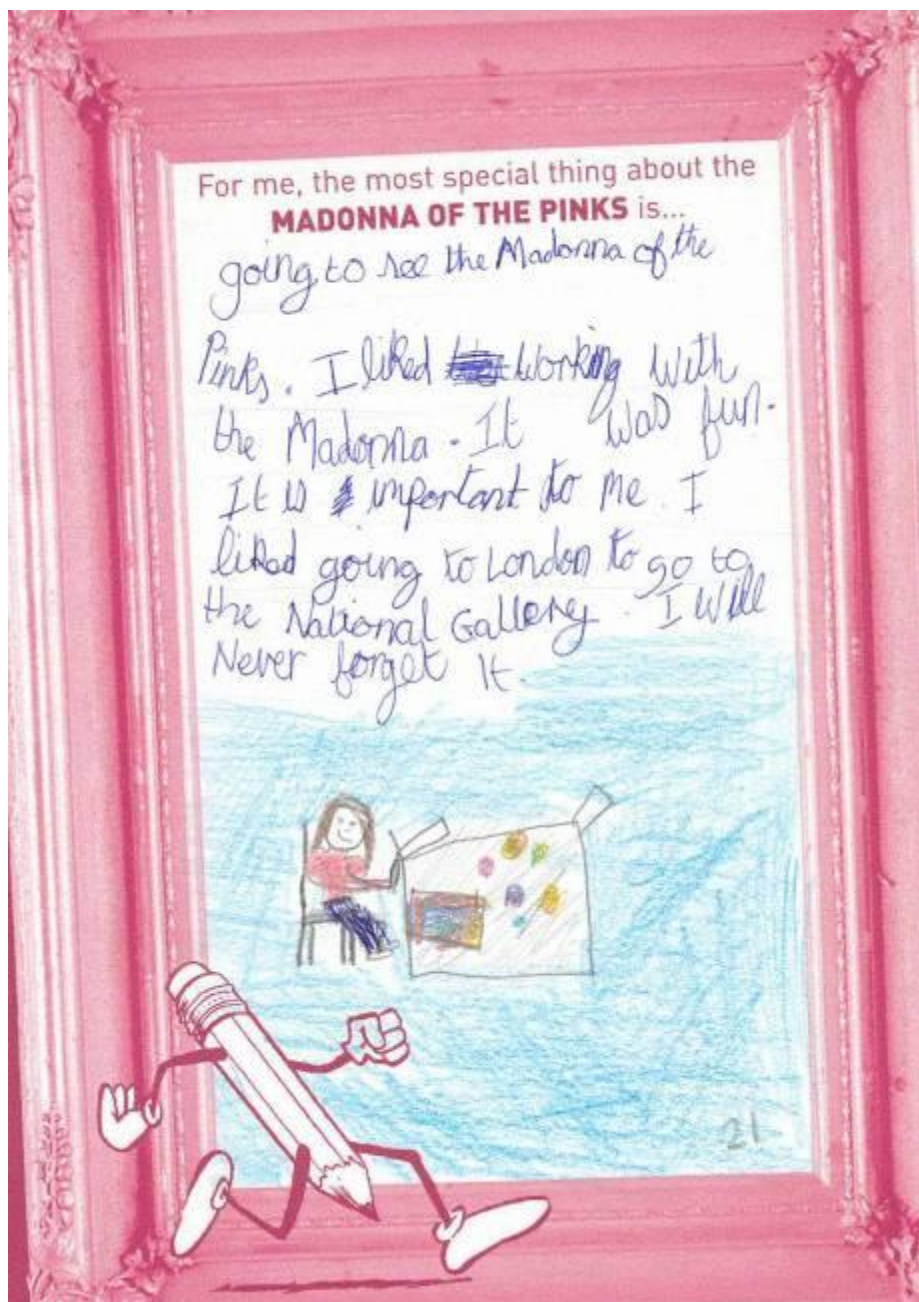 For me, the most special thing about the
MADONNA OF THE PINKS is...
going to see the Madonna of the
Pinks. I liked working with
the Madonna. It was fun.
It is important to me. I
liked going to London to go to
the National Gallery. I will
Never forget it.
21